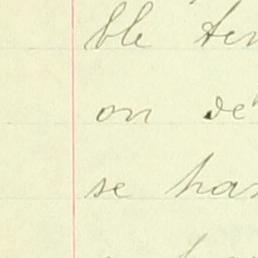 ble ten
on de
se har